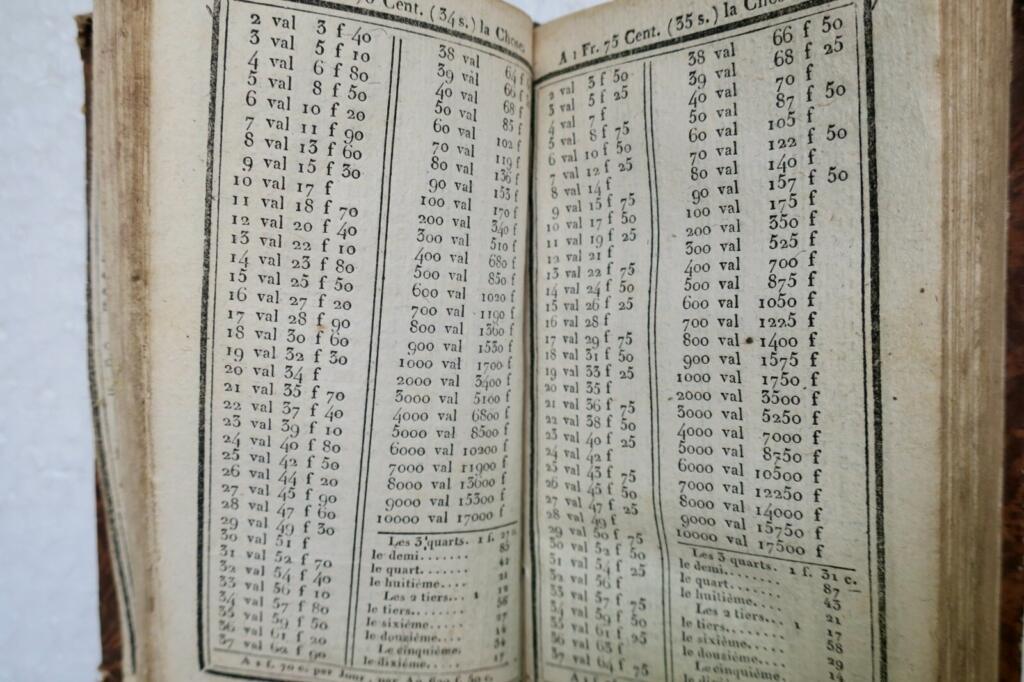 Cent. (34 s.) la Chose
2 val 3 f 40
3 val 5 f 10
4 val 6 f 80
5 val 8 f 50
6 val 10 f 20
7 val 11 f 90
8 val 13 f 60
9 val 15 f 30
10 val 17 f
11 val 18 f 70
12 val 20 f 40
13 val 22 f 10
14 val 23 f 80
15 val 25 f 50
16 val 27 f 20
17 val 28 f 90
18 val 30 f 60
19 val 32 f 30
20 val 34 f
21 val 35 f 70
22 val 37 f 40
23 val 39 f 10
24 val 40 f 80
25 val 42 f 50
26 val 44 f 20
27 val 45 f 90
28 val 47 f 60
29 val 49 f 30
30 val 51 f
31 val 52 f 70
32 val 54 f 40
33 val 56 f 10
34 val 57 f 80
35 val 59 f 50
36 val 61 f 20
37 val 62 f 90
38 val 64 f
39 val 66 f
40 val 68 f
50 val 85 f
60 val 102 f
70 val 119 f
80 val 136 f
90 val 153 f
100 val 170 f
200 val 340 f
300 val 510 f
400 val 680 f
500 val 850 f
600 val 1020 f
700 val 1190 f
800 val 1360 f
900 val 1530 f
1000 val 1700 f
2000 val 3400 f
3000 val 5100 f
4000 val 6800 f
5000 val 8500 f
6000 val 10200 f
7000 val 11900 f
8000 val 13600 f
9000 val 15300 f
10000 val 17000 f
Les 3 quarts. 1 f.
le demi....... 85
le quart....... 42
le huitième.... 21
Les 2 tiers... 1
le tiers........ 56
le sixième.....
le douzième....
Le cinquième. 34
le dixième.... 17
A 1 f. 70 c. par Jour, par An 620 f. 50 c.
A 1 Fr. 75 Cent. (35 s.) la Chose
2 val 3 f 50
3 val 5 f 25
4 val 7 f
5 val 8 f 75
6 val 10 f 50
7 val 12 f 25
8 val 14 f
9 val 15 f 75
10 val 17 f 50
11 val 19 f 25
12 val 21 f
13 val 22 f 75
14 val 24 f 50
15 val 26 f 25
16 val 28 f
17 val 29 f 75
18 val 31 f 50
19 val 33 f 25
20 val 35 f
21 val 36 f 75
22 val 38 f 50
23 val 40 f 25
24 val 42 f
25 val 43 f 75
26 val 45 f 50
27 val 47 f 25
28 val 49 f
29 val 50 f 75
30 val 52 f 50
31 val 54 f 25
32 val 56 f
33 val 57 f 75
34 val 59 f 50
35 val 61 f 25
36 val 63 f
37 val 64 f 75
38 val 66 f 50
39 val 68 f 25
40 val 70 f
50 val 87 f 50
60 val 105 f
70 val 122 f 50
80 val 140 f
90 val 157 f 50
100 val 175 f
200 val 350 f
300 val 525 f
400 val 700 f
500 val 875 f
600 val 1050 f
700 val 1225 f
800 val 1400 f
900 val 1575 f
1000 val 1750 f
2000 val 3500 f
3000 val 5250 f
4000 val 7000 f
5000 val 8750 f
6000 val 10500 f
7000 val 12250 f
8000 val 14000 f
9000 val 15750 f
10000 val 17500 f
Les 3 quarts. 1 f. 31 c.
le demi........ 87
le quart....... 43
le huitième.... 21
Les 2 tiers.... 1 17
le tiers........ 58
le sixième..... 29
le douzième.... 14
Le cinquième